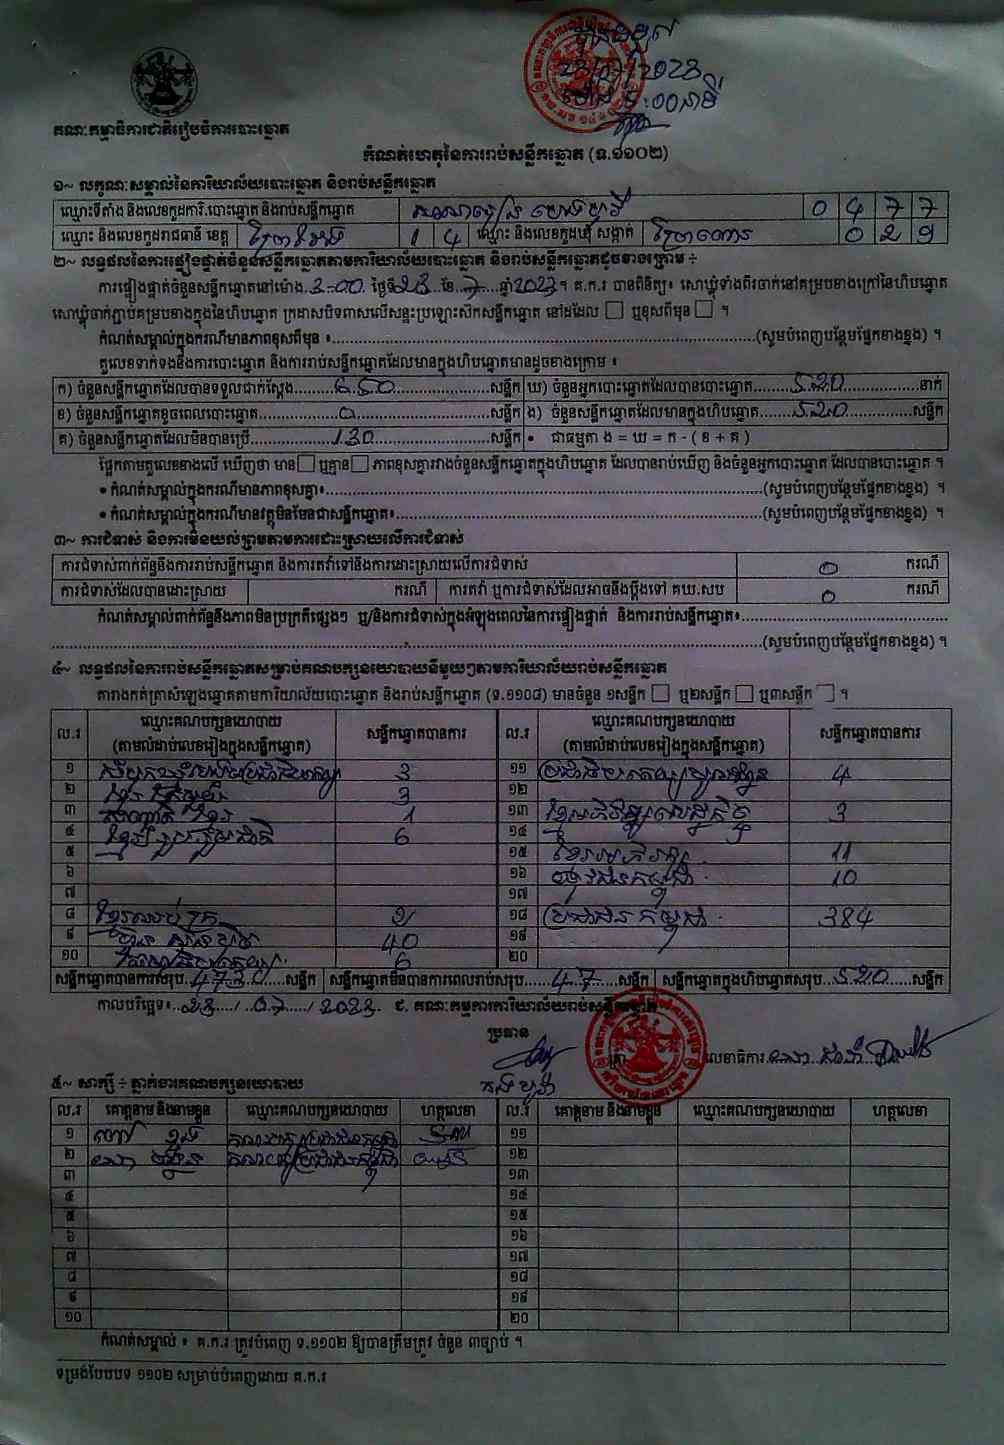 គណៈកម្មាធិការជាតិរៀបចំការបោះឆ្នោត
23/07/2023
កំណត់ហេតុនៃការរាប់សន្លឹកឆ្នោត (ទ.១១០២)
១~ លក្ខណៈសម្គាល់នៃការិយាល័យបោះឆ្នោត និងរាប់សន្លឹកឆ្នោត
ឈ្មោះទីតាំង និងលេខកូដការិ.បោះឆ្នោត និងរាប់សន្លឹកឆ្នោត 0 4 7 7
ឈ្មោះ និងលេខកូដរាជធានី ខេត្ត ព្រៃវែង 1 4 ឈ្មោះ និងលេខកូដឃុំ សង្កាត់ 0 2 9
២~ លទ្ធផលនៃការផ្ទៀងផ្ទាត់ចំនួនសន្លឹកឆ្នោតតាមការិយាល័យបោះឆ្នោត និងរាប់សន្លឹកឆ្នោតដូចខាងក្រោម ÷
ការផ្ទៀងផ្ទាត់ចំនួនសន្លឹកឆ្នោតនៅម៉ោង 3:00 ថ្ងៃទី 23 ខែ 7 ឆ្នាំ 2023។ គ.ក.រ បានពិនិត្យ៖ សោឃ្លុំទាំងពីរចាក់នៅគម្របខាងក្រៅនៃហិបឆ្នោត
សោឃ្លុំចាក់ភ្ជាប់គម្របខាងក្នុងនៃហិបឆ្នោត ក្រដាសបិទពាសលើសន្ទះប្រឡោះសៀតសន្លឹកឆ្នោត នៅដដែល □ ឬខុសពីមុន □ ។
កំណត់សម្គាល់ក្នុងករណីមានភាពខុសពីមុន ៖ (សូមបំពេញបន្ថែមផ្នែកខាងខ្នង) ។
តួលេខទាក់ទងនឹងការបោះឆ្នោត និងការរាប់សន្លឹកឆ្នោតដែលមានក្នុងហិបឆ្នោតមានដូចខាងក្រោម ៖
ក) ចំនួនសន្លឹកឆ្នោតដែលបានទទួលជាក់ស្តែង 650 សន្លឹក ឃ) ចំនួនអ្នកបោះឆ្នោតដែលបានបោះឆ្នោត 520 នាក់
ខ) ចំនួនសន្លឹកឆ្នោតខូចពេលបោះឆ្នោត 0 សន្លឹក ង) ចំនួនសន្លឹកឆ្នោតដែលមានក្នុងហិបឆ្នោត 520 សន្លឹក
គ) ចំនួនសន្លឹកឆ្នោតដែលមិនបានប្រើ 130 សន្លឹក • ជាធម្មតា ង = ឃ = ក - ( ខ + គ )
ផ្អែកតាមតួលេខខាងលើ ឃើញថា មាន □ ឬគ្មាន □ ភាពខុសគ្នារវាងចំនួនសន្លឹកឆ្នោតក្នុងហិបឆ្នោត ដែលបានរាប់ឃើញ និងចំនួនអ្នកបោះឆ្នោត ដែលបានបោះឆ្នោត ។
• កំណត់សម្គាល់ក្នុងករណីមានភាពខុសគ្នា៖ (សូមបំពេញបន្ថែមផ្នែកខាងខ្នង) ។
• កំណត់សម្គាល់ក្នុងករណីមានវត្ថុមិនមែនជាសន្លឹកឆ្នោត៖ (សូមបំពេញបន្ថែមផ្នែកខាងខ្នង) ។
៣~ ការជំទាស់ និងការមិនយល់ព្រមតាមការដោះស្រាយលើការជំទាស់
ការជំទាស់ពាក់ព័ន្ធនឹងការរាប់សន្លឹកឆ្នោត និងការតវ៉ាទៅនឹងការដោះស្រាយលើការជំទាស់ 0 ករណី
ការជំទាស់ដែលបានដោះស្រាយ ករណី ការតវ៉ា ឬការជំទាស់ដែលអាចនឹងប្តឹងទៅ គឃ.សប 0 ករណី
កំណត់សម្គាល់ពាក់ព័ន្ធនឹងភាពមិនប្រក្រតីផ្សេងៗ ឬ/និងការជំទាស់ក្នុងអំឡុងពេលនៃការផ្ទៀងផ្ទាត់ និងការរាប់សន្លឹកឆ្នោត៖
(សូមបំពេញបន្ថែមផ្នែកខាងខ្នង) ។
៤~ លទ្ធផលនៃការរាប់សន្លឹកឆ្នោតសម្រាប់គណបក្សនយោបាយនីមួយៗតាមការិយាល័យរាប់សន្លឹកឆ្នោត
តារាងកត់ត្រាសំឡេងឆ្នោតតាមការិយាល័យបោះឆ្នោត និងរាប់សន្លឹកឆ្នោត (ទ.១១០៨) មានចំនួន ១សន្លឹក □ ឬ២សន្លឹក □ ឬ៣សន្លឹក □ ។
ល.រ ឈ្មោះគណបក្សនយោបាយ (តាមលំដាប់លេខរៀងក្នុងសន្លឹកឆ្នោត) សន្លឹកឆ្នោតបានការ ល.រ ឈ្មោះគណបក្សនយោបាយ (តាមលំដាប់លេខរៀងក្នុងសន្លឹកឆ្នោត) សន្លឹកឆ្នោតបានការ
១ 3 ១១ 4
២ 3 ១២
៣ 1 ១៣ 3
៤ ខ្មែររួបរួមជាតិ 6 ១៤
៥ ១៥ 11
៦ ១៦ 10
៧ ១៧
៨ 2 ១៨ ប្រជាជនកម្ពុជា 384
៩ 40 ១៩
១០ 6 ២០
សន្លឹកឆ្នោតបានការសរុប 473 សន្លឹក សន្លឹកឆ្នោតមិនបានការពេលរាប់សរុប 47 សន្លឹក សន្លឹកឆ្នោតក្នុងហិបឆ្នោតសរុប 520 សន្លឹក
កាលបរិច្ឆេទ៖ 23 / 07 / 2023 ជ. គណៈកម្មការការិយាល័យរាប់សន្លឹកឆ្នោត
ប្រធាន
លេខាធិការ
៥~ សាក្សី ÷ ភ្នាក់ងារគណបក្សនយោបាយ
ល.រ គោត្តនាម និងនាមខ្លួន ឈ្មោះគណបក្សនយោបាយ ហត្ថលេខា ល.រ គោត្តនាម និងនាមខ្លួន ឈ្មោះគណបក្សនយោបាយ ហត្ថលេខា
១ គណបក្សប្រជាជនកម្ពុជា ១១
២ គណបក្សប្រជាជនកម្ពុជា ១២
៣ ១៣
៤ ១៤
៥ ១៥
៦ ១៦
៧ ១៧
៨ ១៨
៩ ១៩
១០ ២០
កំណត់សម្គាល់ ៖ គ.ក.រ ត្រូវបំពេញ ទ.១១០២ ឱ្យបានត្រឹមត្រូវ ចំនួន ៣ច្បាប់ ។
ទម្រង់បែបបទ ១១០២ សម្រាប់បំពេញដោយ គ.ក.រ